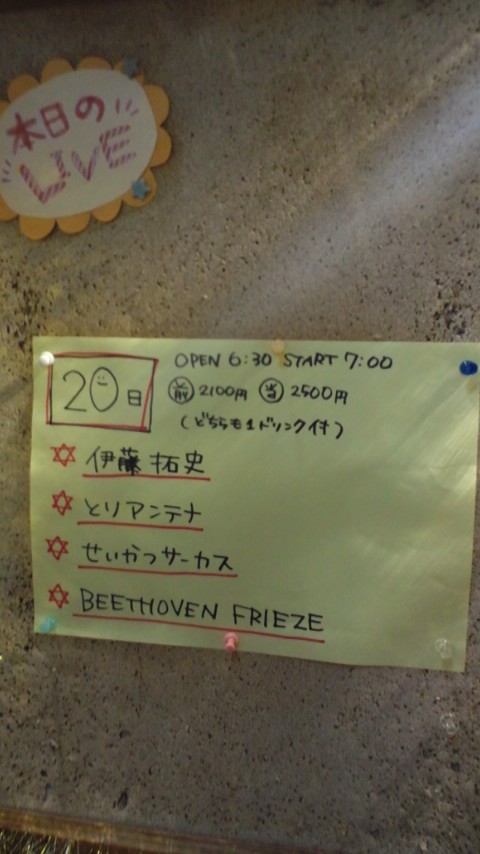 本日の
LIVE
20日
OPEN 6:30 START 7:00
前 2100円 当 2500円
(どちらも1ドリンク付)
伊藤 拓史
とりアンテナ
せいかつサーカス
BEETHOVEN FRIEZE